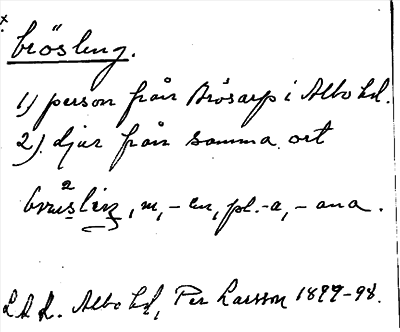 brösling.
1) person från Brösarp i Albo hd.
2) djur från samma ort
m, -en, pl. -a, -ana.
L.A.L. Albo hd, Per Larsson 1897-98.